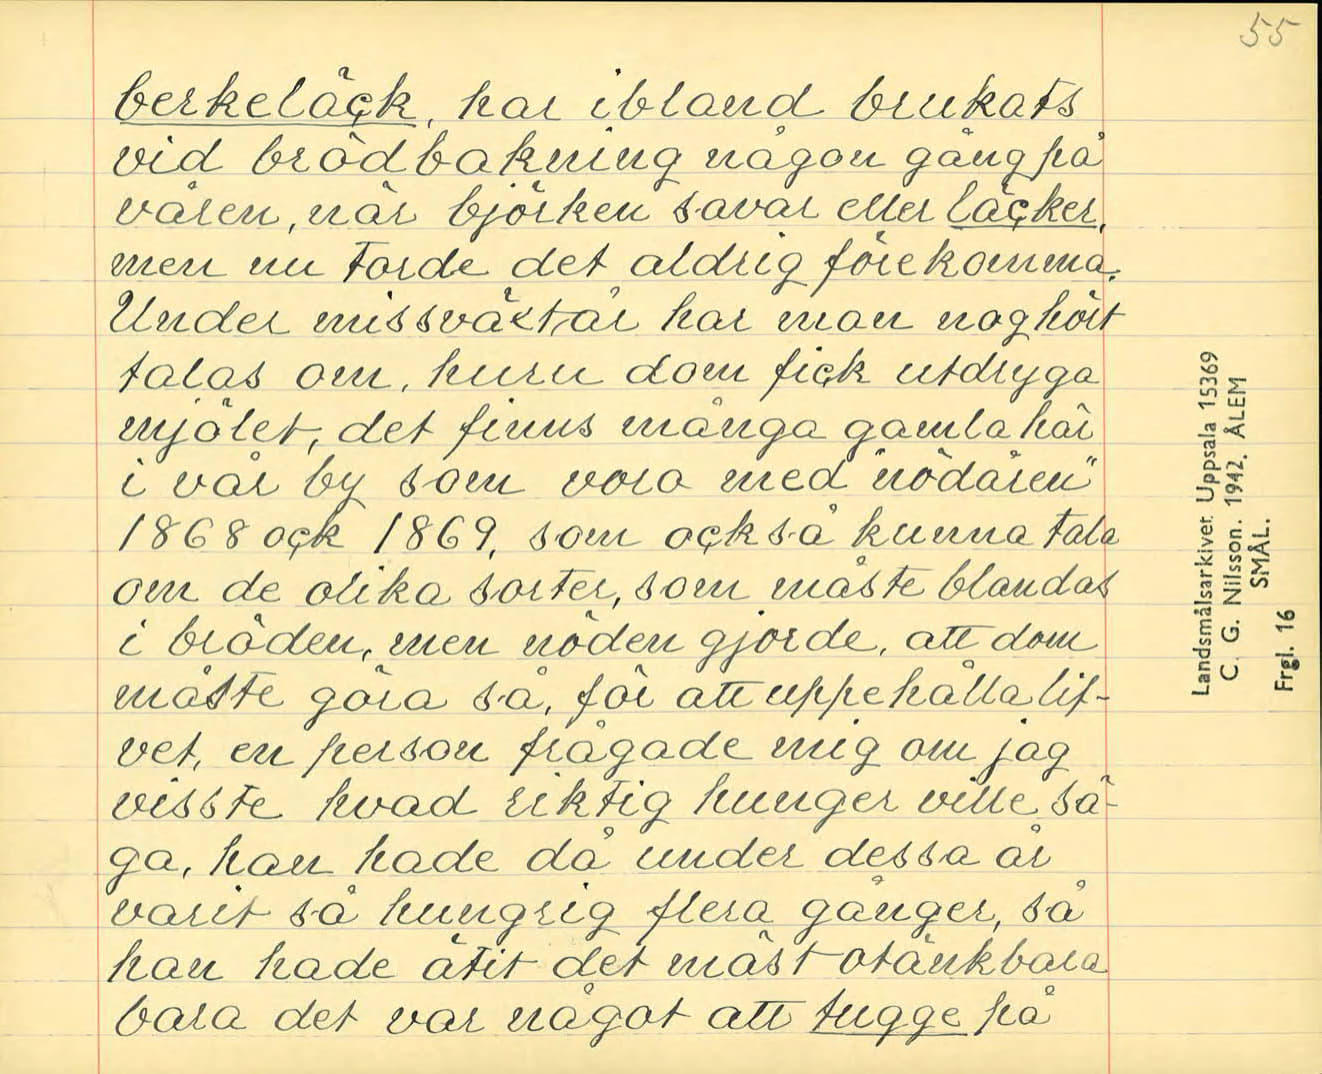 55
berkeläçk, har ibland brukats
vid brödbakning någon gång på
våren, när björken savar eller läçker,
men nu torde det aldrig förekomma.
Under missväxtår har man nog hört
talas om, huru dom fiçk utdryga
mjölet, det finns många gamla här
i vår by som voro med "nödåren"
1868 oçk 1869, som oçkså kunna tala
om de olika sorter, som måste blandas
i bröden, men nöden gjorde, att dom
måste göra så, för att uppehålla lif-
vet, en person frågade mig om jag
visste hvad riktig hunger ville sä-
ga, han hade då under dessa år
varit så hungrig flera gånger, så
han hade ätit det mäst otänkbara
bara det var något att tugge på
Landsmålsarkivet Uppsala 15369
C. G. Nilsson. 1942. ÅLEM
SMÅL.
Frgl. 16